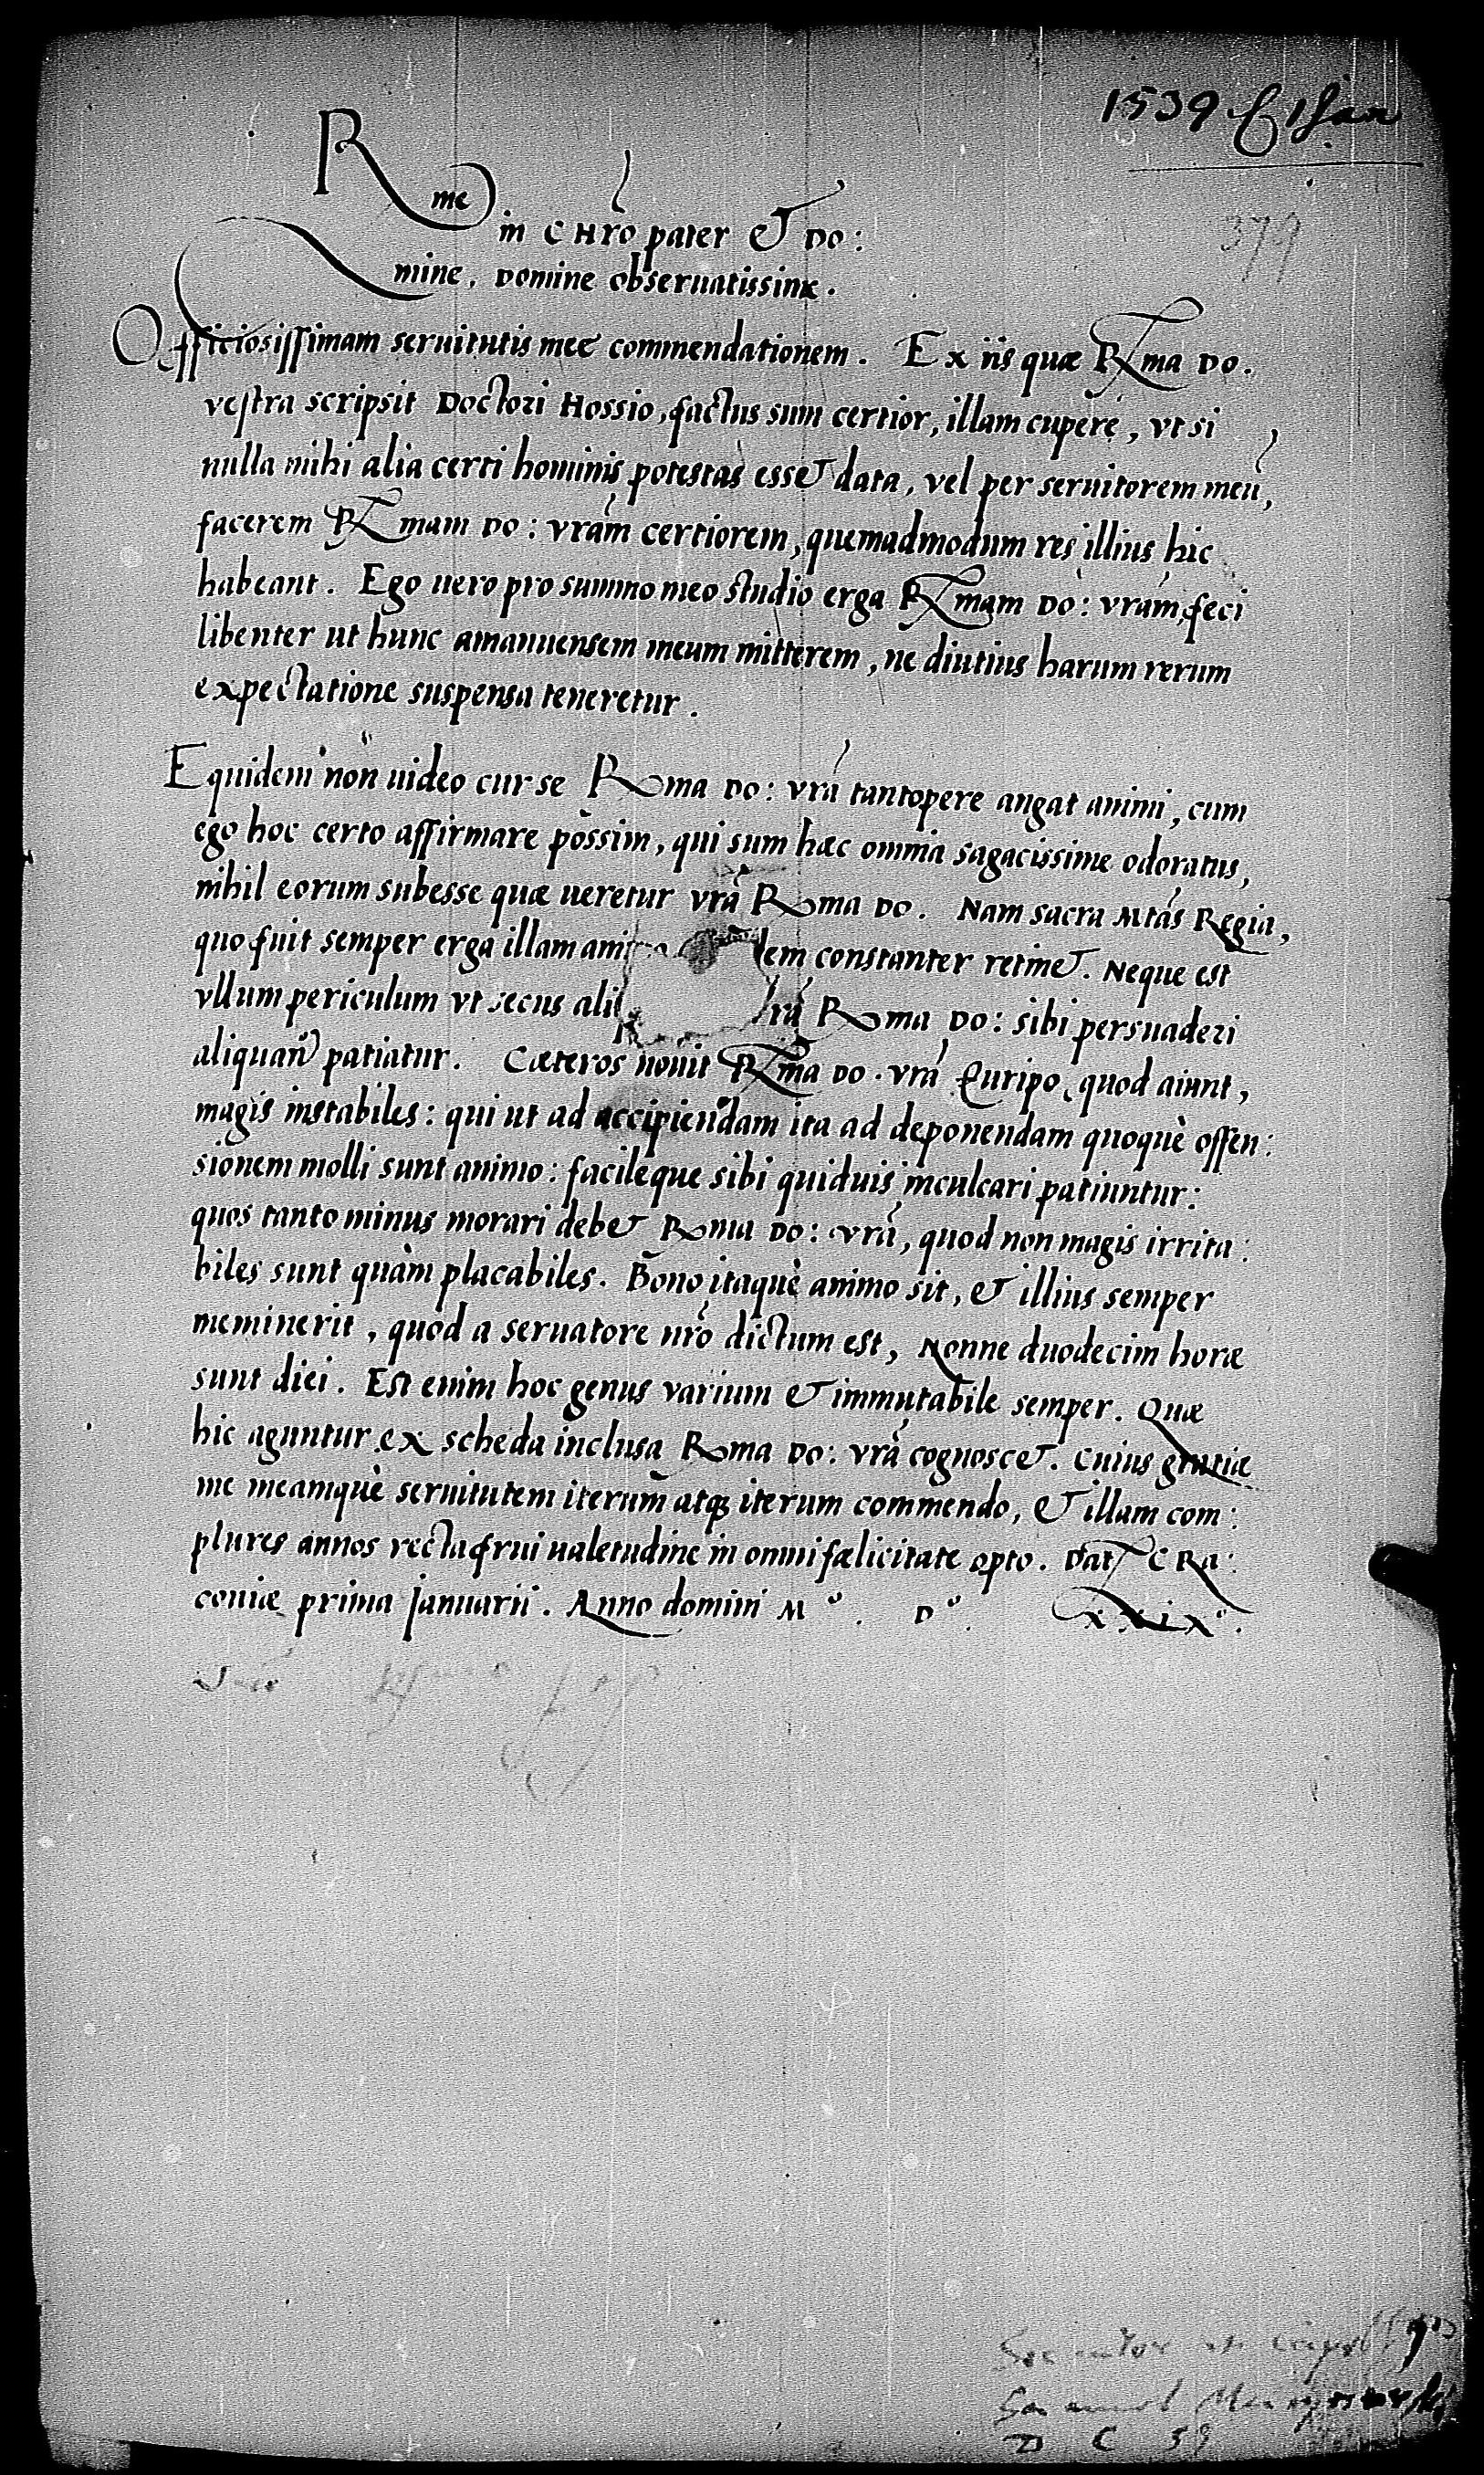 1539 Jan
379
Rme in CHro pater et Do:
mine, Domine observatissime.
Officiosissimam servitutis meę commendationem. Ex iis quæ Rma Do.
vestra scripsit Doctori Hossio, factus sum certior, illam cupere, vt si
nulla mihi alia certi hominis potestas esset data, vel per servitorem meū,
facerem Rmam Do: vram certiorem, quemadmodum res illius hic
habeant. Ego uero pro summo meo studio erga Rmam Do: vram, feci
libenter ut hunc amanuensem meum mitterem, ne diutius harum rerum
expectatione suspensa teneretur.
Equidem non uideo cur se Roma Do: vra tantopere angat animi, cum
ego hoc certo affirmare possim, qui sum hæc omnia sagacissime odoratus,
nihil eorum subesse quæ ueretur vra Roma Do. Nam sacra Mtas Regia,
quo fuit semper erga illam ani dem constanter retinet. Neque est
vllum periculum vt secus ali rá Roma Do: sibi persuaderi
aliquan patiatur. Cæteros novit Rma Do. vra Euripo, quod aiunt,
magis instabiles: qui ut ad accipiendam ita ad deponendam quoquè offen:
sionem molli sunt animo: facileque sibi quiduis inculcari patiuntur:
quos tanto minus morari debet Roma Do: vra, quod non magis irrita:
biles sunt quàm placabiles. Bono itaquè animo sit, et illius semper
meminerit, quod a seruatore nro dictum est, Nonne duodecim horæ
sunt diei. Est enim hoc genus varium et immutabile semper. Quæ
hic aguntur ex scheda inclusa Roma Do: vra cognoscet. Cuius gratiæ
me meamquè seruitutem iterum atq; iterum commendo, et illam com:
plures annos recta frui ualetudine in omni fælicitate opto. Dat CRa:
coniæ prima Januarii. Anno domini Mo. Do. xxxixo.
D C 59